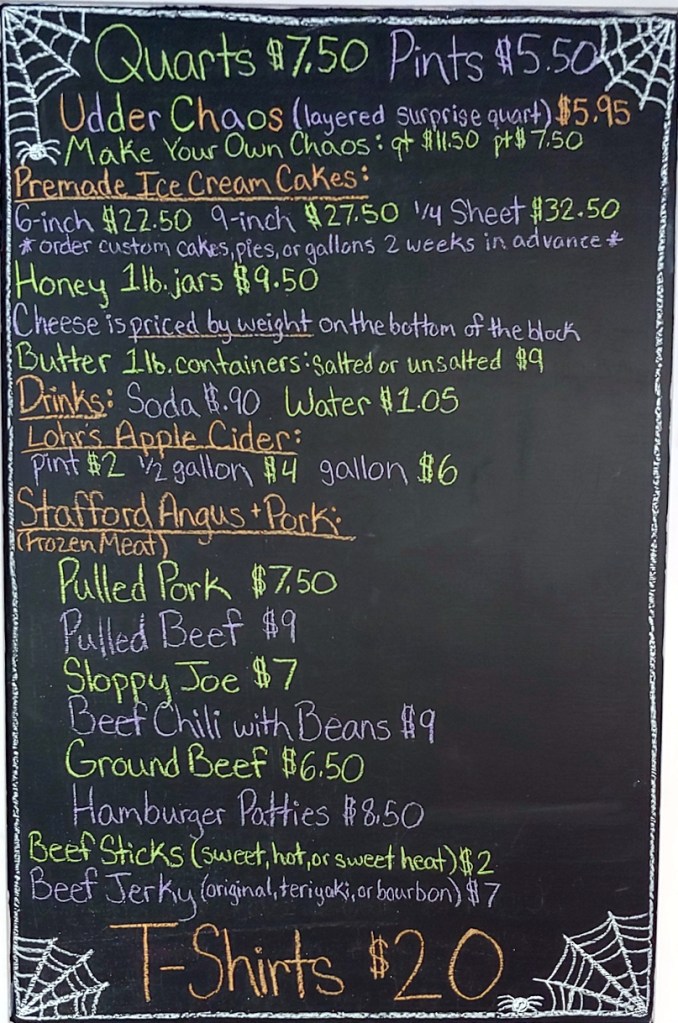 Quarts $7.50 Pints $5.50
Udder Chaos (layered surprise quart) $5.95
Make Your Own Chaos: qt $11.50 pt $7.50
Premade Ice Cream Cakes:
6-inch $22.50 9-inch $27.50 1/4 Sheet $32.50
*order custom cakes, pies, or gallons 2 weeks in advance*
Honey 1lb. jars $9.50
Cheese is priced by weight on the bottom of the block
Butter 1lb. containers: salted or unsalted $9
Drinks: Soda $.90 Water $1.05
Lohr's Apple Cider:
pint $2 1/2 gallon $4 gallon $6
Stafford Angus + Pork:
(Frozen Meat)
Pulled Pork $7.50
Pulled Beef $9
Sloppy Joe $7
Beef Chili with Beans $9
Ground Beef $6.50
Hamburger Patties $8.50
Beef Sticks (sweet, hot, or sweet heat) $2
Beef Jerky (original, teriyaki, or bourbon) $7
T-Shirts $20